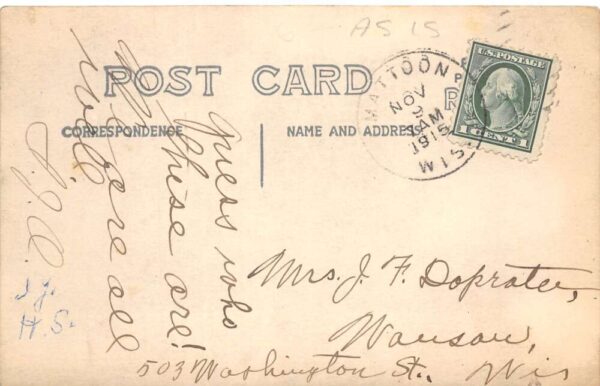 AS IS
POST CARD
CORRESPONDENCE
NAME AND ADDRESS
MATTOON
NOV
1AM
1915
WIS.
U.S. POSTAGE
1 CENT 1
Guess who
these are!
We are all
well
H.S.
Mrs. J. F. Doprater,
Wausau,
503 Washington St., Wis